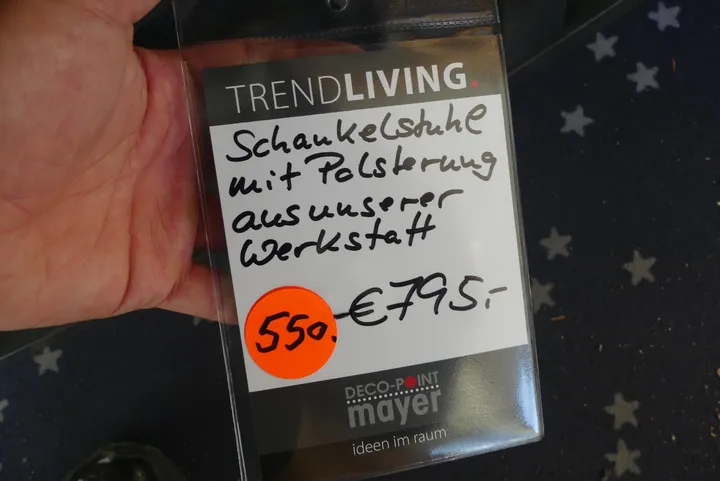 TRENDLIVING.
Schaukelstuhl
mit Polsterung
aus unserer
Werkstatt
550.- €795.-
DECO-POINT
mayer
ideen im raum